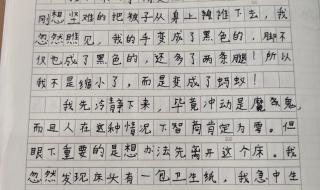 刚想坚难的把被子从身上挪推下去，我
忽然瞧见，我的手变成了黑色的，脚不
仅也成了黑色的，还多了两条腿！所以
我不是缩小了，而是变成了蚂蚁！
我先冷静下来，毕竟冲动是魔鬼，
而且人在这种情况下智商肯定为零。但
眼下重要的是想办法先离开这个床。我
忽然发现床头有一包卫生纸，我急中生